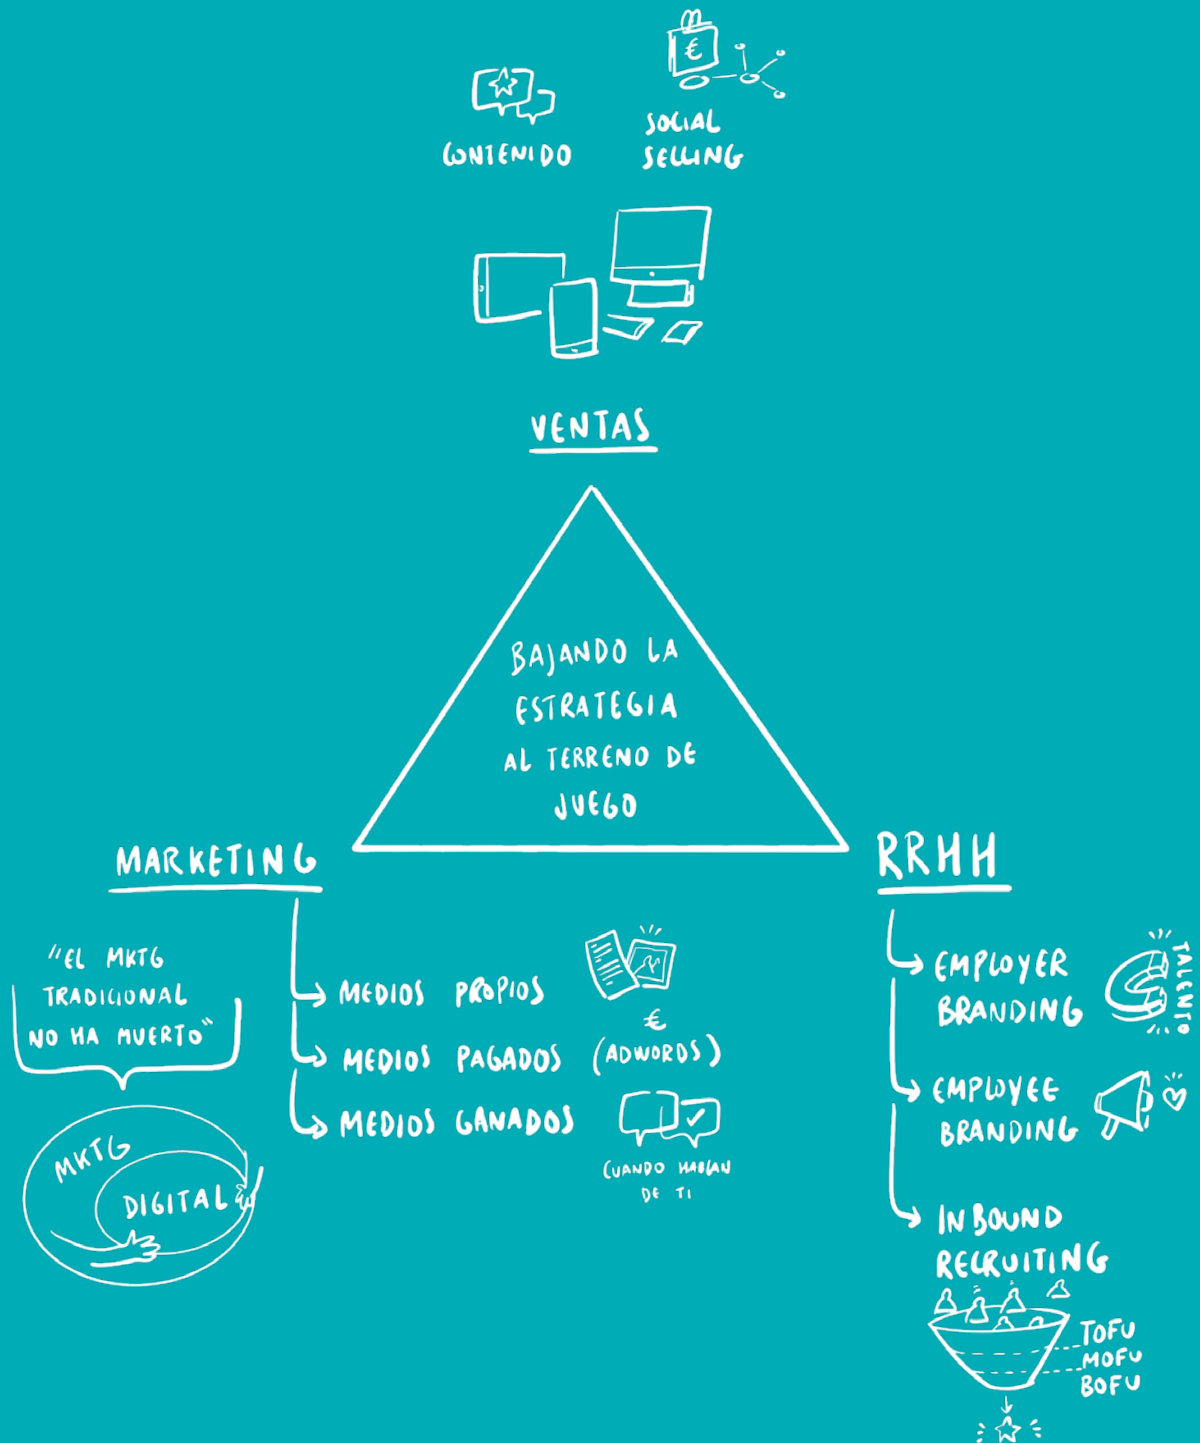 CONTENIDO
€
SOCIAL
SELLING
VENTAS
BAJANDO LA
ESTRATEGIA
AL TERRENO DE
JUEGO
MARKETING
"EL MKTG
TRADICIONAL
NO HA MUERTO"
MKTG
DIGITAL
MEDIOS PROPIOS
€
MEDIOS PAGADOS (ADWORDS)
MEDIOS GANADOS
CUANDO HABLAN
DE TI
RRHH
EMPLOYER
BRANDING
TALENTO
EMPLOYEE
BRANDING
INBOUND
RECRUITING
TOFU
MOFU
BOFU